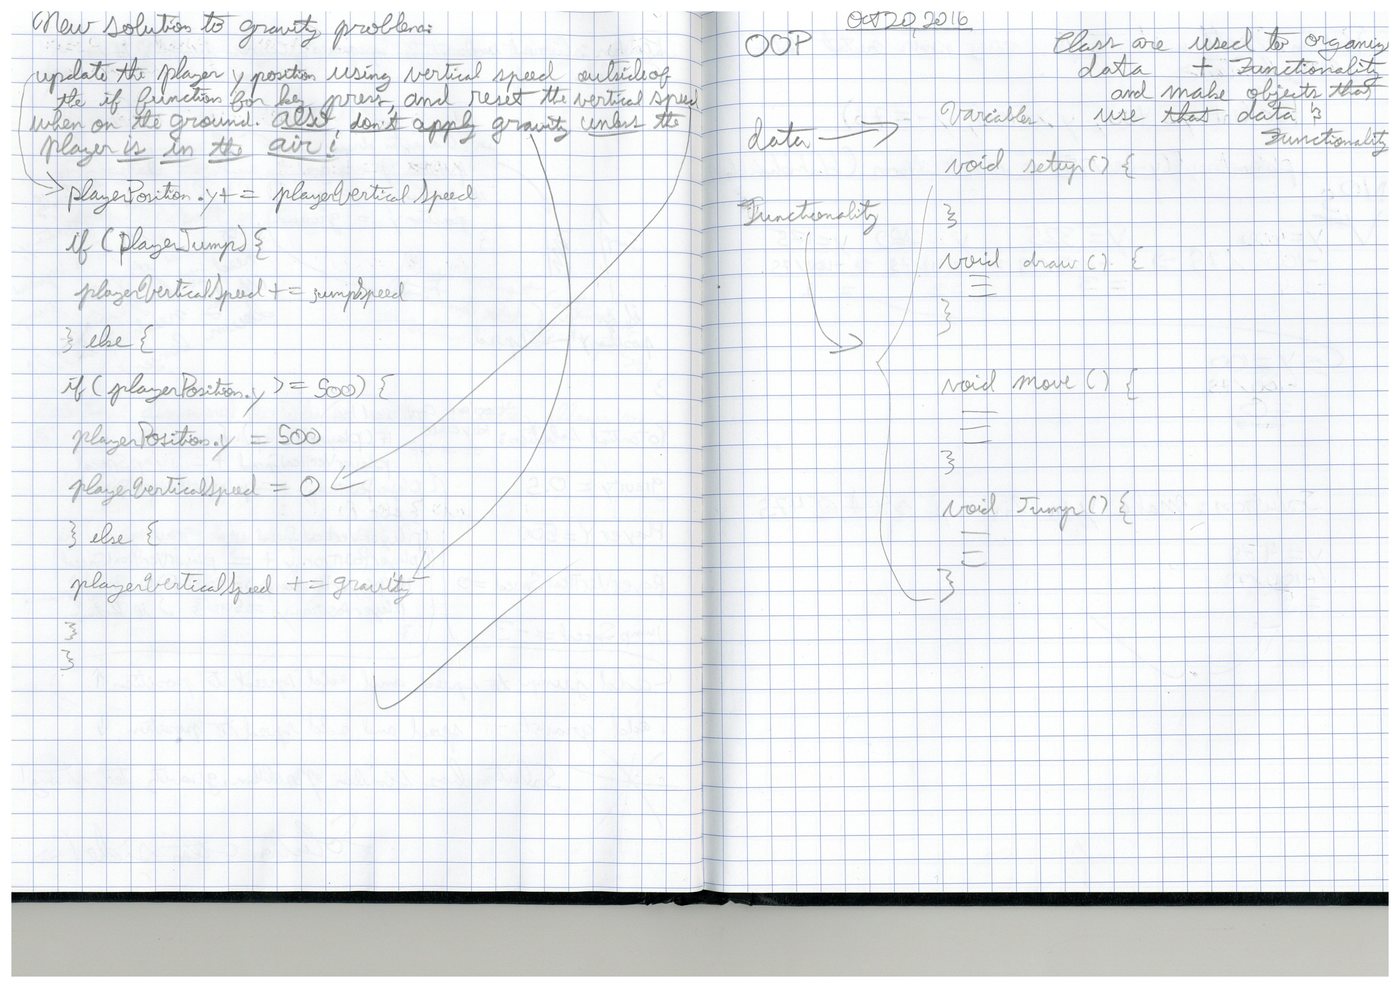 New solution to gravity problem:
update the player y position using vertical speed outside of
the if function for key press, and reset the vertical speed
when on the ground. also don't apply gravity unless the
player is in the air!
playerPosition.y += playerVerticalSpeed
if (playerJump) {
playerVerticalSpeed += jumpSpeed
} else {
if (playerPosition.y >= 500) {
playerPosition.y = 500
playerVerticalSpeed = 0
} else {
playerVerticalSpeed += gravity
}
}
Oct 20, 2016
OOP
Class are used to organize
data + Functionality
and make objects that
use that data &
Functionality
data
Variables
Functionality
void setup() {
}
void draw() {
}
void move() {
}
void Jump() {
}